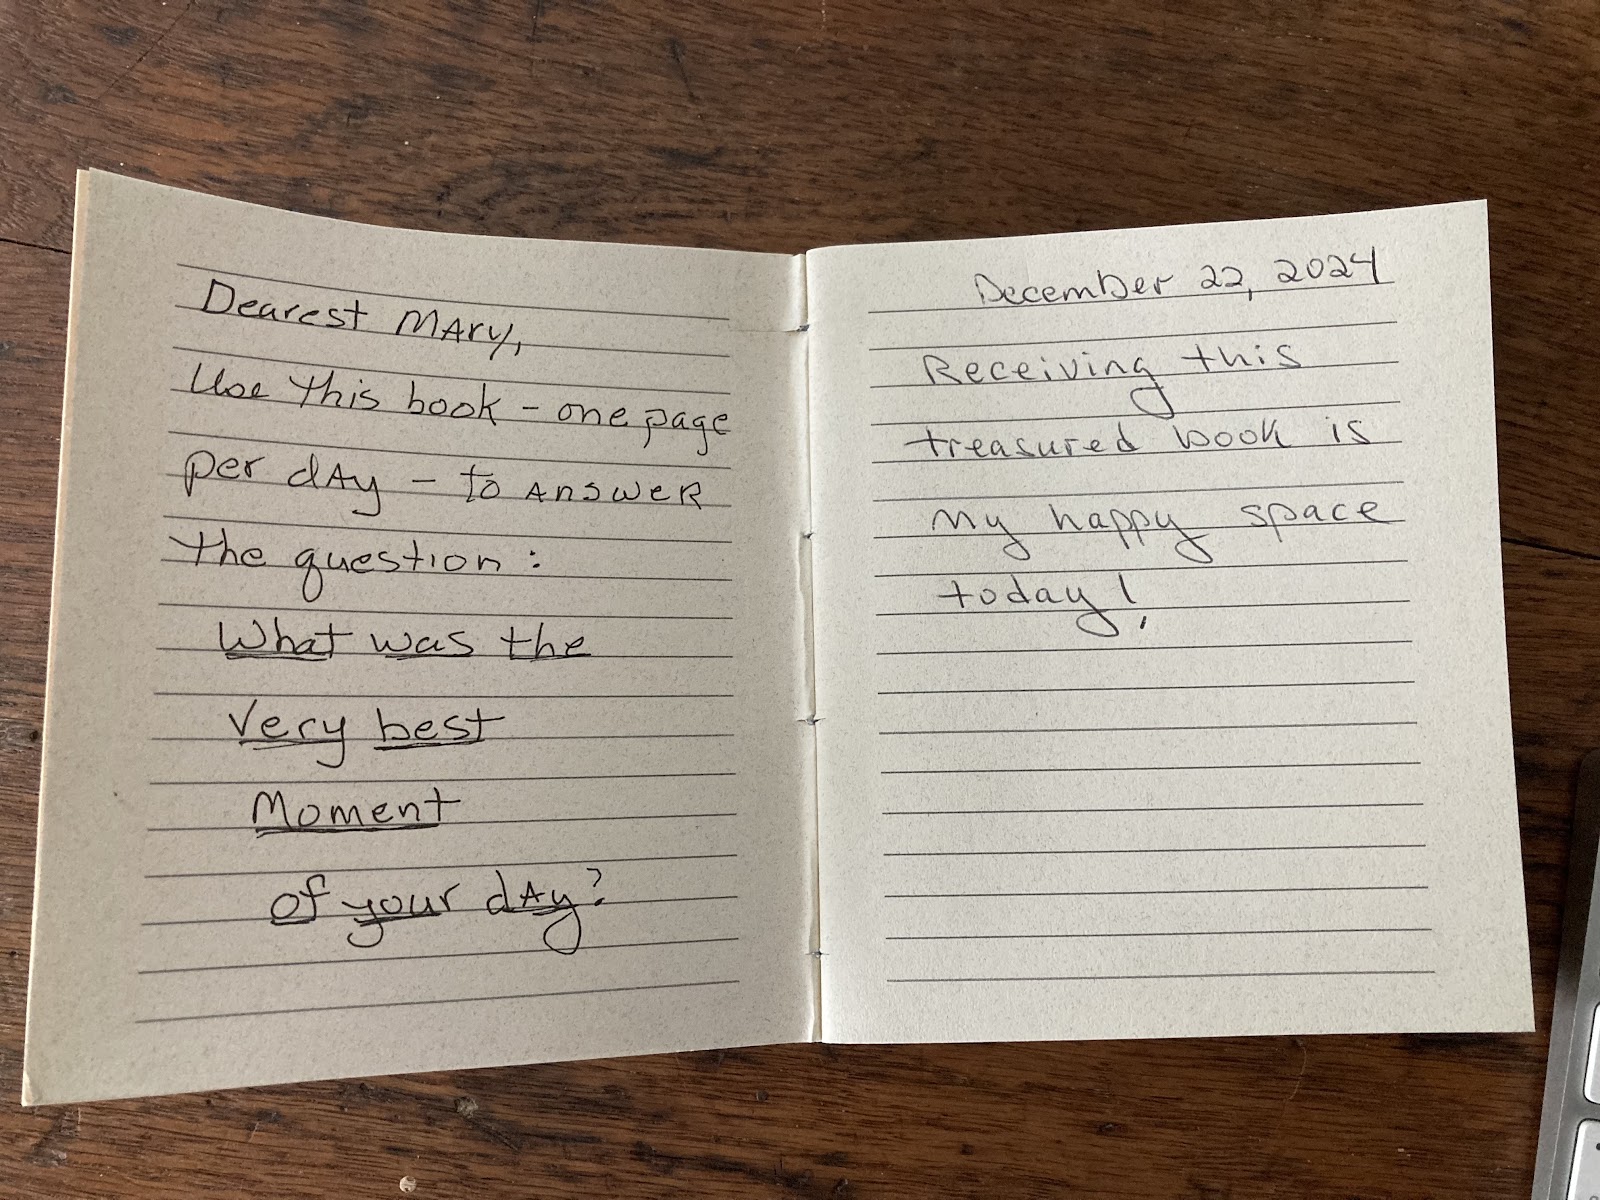 Dearest MARY,
Use this book - one page
per dAy - to ANSWER
the question :
What was the
very best
Moment
of your dAy?
December 22, 2024
Receiving this
treasured book is
my happy space
today!